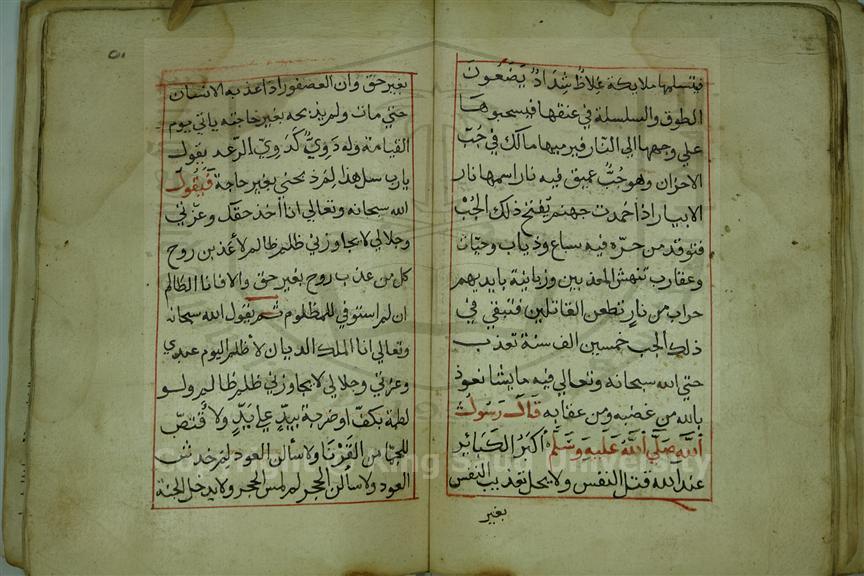 فتسلمها ملايكة غلاظ شداد يضعون
الطوق والسلسلة في عنقها فيسحبوها
علي وجهها الي النار فيرميها مالك في جب
الاحزان وهو جب عميق فيه نار اسمها نار
الانيار اذا خمدت جهنم يفتح ذلك الجب
فتوقد من حره فيه سباع وذياب وحيات
وعقارب تنهش المعذبين وزبانية بايديهم
حراب من نار تطعن القاتلين فتبقي في
ذلك الجب خمسين الف سنة تعذب
حتي الله سبحانه وتعالي فيه ما يشا نعوذ
بالله من غضبه ومن عقابه قال رسول
الله صلي الله عليه وسلم اكبر الكباير
عند الله قتل النفس ولا يحل تعذيب النفس
بغير
بغير حق وان العصفور اذا عذبه الانسان
حتي مات ولم يذبحه بغير حاجته ياتي يوم
القيامة وله دوي كدوي الرعد يقول
يارب سل هذا لم يذبحني بغير حاجة فيقول
الله سبحانه وتعالي انا آخذ حقك وعزتي
وجلالي لا يجاوزني ظلم ظالم لاعذبن روح
كل من عذب روح بغير حق والا فانا الظالم
ان لم استوفي للمظلوم ثم يقول الله سبحانه
وتعالي انا الملك الديان لا ظلم اليوم عبدي
وعزتي وجلالي لا يجاوزني ظلم ظالم ولو
لطمة بكف او ضربة بيد علي يد ولا قتص
للجما من القرنا ولاسألن العود لم خدش
العود ولاسألن الحجر لم لمس الحجر ولا يدخل الجنة
Copyright © King Saud University